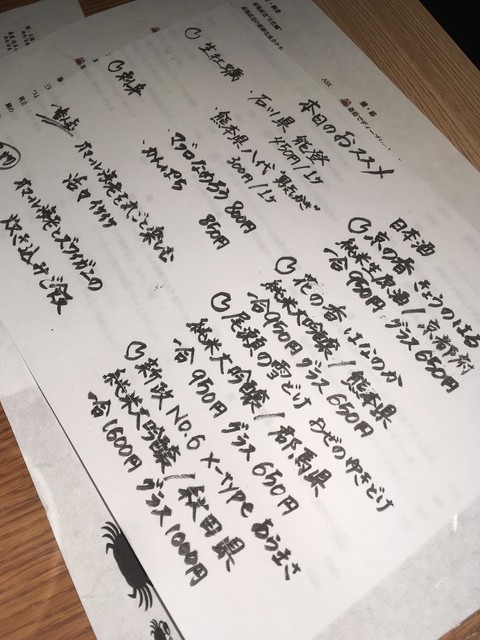 本日のおススメ
生牡蠣
石川県 能登
450円/1ヶ
熊本県八代"鏡オイスター"
300円/1ヶ
刺身
マグロなめろう 800円
かんぱち 850円
オマール海老を丸ごと楽しむ
活々イケイケ
オマール海老とズワイガニの
炊き込みご飯
日本酒
京の春 きょうのはる
純米生原酒/京都府
一合 950円 グラス 650円
花の香 はなのか
純米大吟醸/熊本県
一合 950円 グラス 650円
尾瀬の雪どけ おぜのゆきどけ
純米大吟醸/群馬県
一合 950円 グラス 650円
新政 No.6 X-type あらまさ
純米大吟醸/秋田県
一合 1600円 グラス 1000円